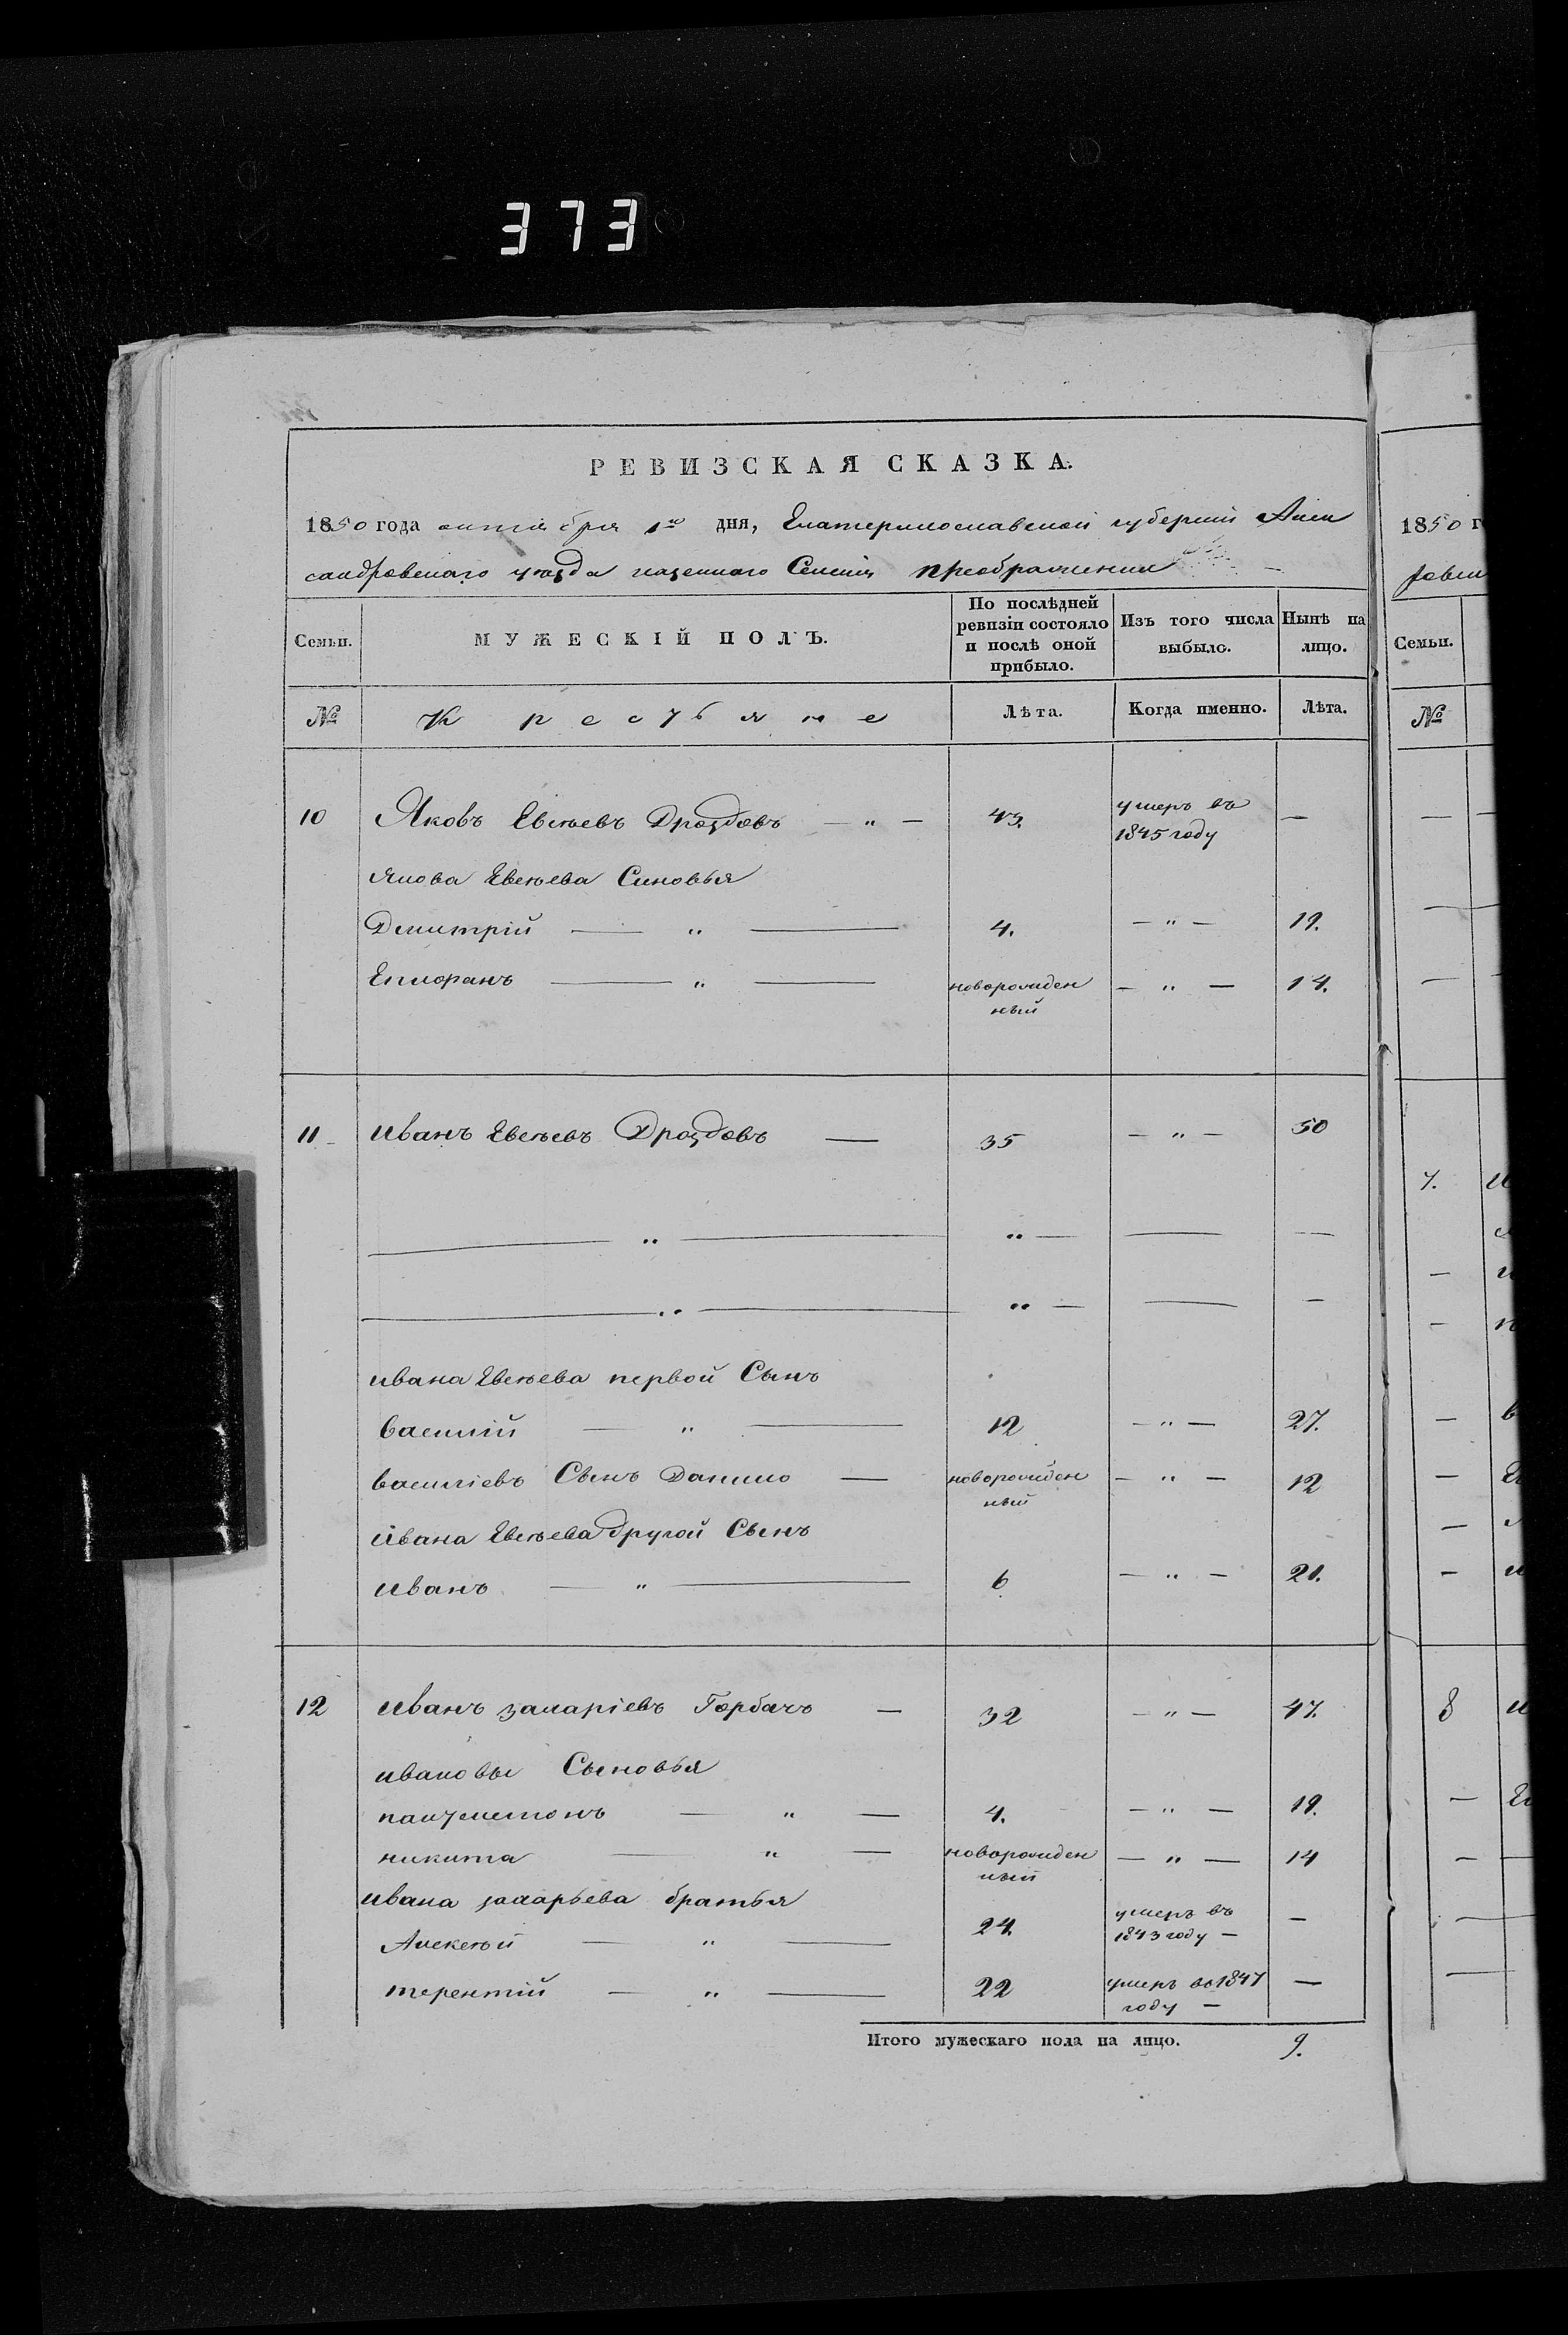 373
РЕВИЗСКАЯ СКАЗКА.
1850 года октября 1го дня, Екатеринославской губернии Алек
сандровскаго уѣзда казеннаго Селенія преображенки
Семьи.
МУЖЕСКІЙ ПОЛЪ.
По послѣдней ревизіи состояло и послѣ оной прибыло.
Изъ того числа выбыло.
Нынѣ на лицо.
№
Крестьяне
Лѣта.
Когда именно.
Лѣта.
10 Яковъ Евсѣевъ Дроздовъ — " — 43. умеръ въ 1845 году —
Якова Евсѣева Синовья
Дмитрій — " — 4. — " — 19.
Епифанъ — " — новорожден ный — " — 14.
11 Иванъ Евсѣевъ Дроздовъ — 35 — " — 50
— " — " — — —
— " — " — — —
ивана Евсѣева первой Сынъ
василій — " — 12 — " — 27.
василіевъ Сынъ Данило — новорожден ный — " — 12
ивана Евсѣева другой Сынъ
иванъ — " — 6 — " — 21.
12 иванъ захаріевъ Горбачъ — 32 — " — 47.
ивановы Сыновья
— " — 4. — " — 19.
никита — " — новорожден ный — " — 14
ивана захарьева братья
Алексѣй — " — 24. умеръ въ 1843 году — —
терентій — " — 22 умеръ въ 1847 году — —
Итого мужескаго пола на лицо. 9.
1850 г
Семьи.
№
7.
8